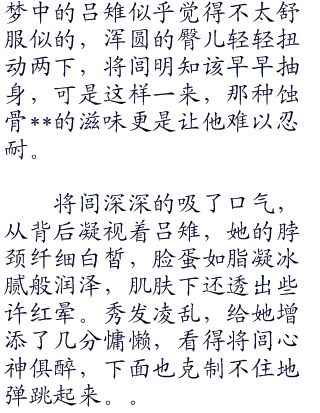 梦中的吕雉似乎觉得不太舒
服似的，浑圆的臀儿轻轻扭
动两下，将闾明知该早早抽
身，可是这样一来，那种蚀
骨**的滋味更是让他难以忍
耐。
将闾深深的吸了口气，
从背后凝视着吕雉，她的脖
颈纤细白皙，脸蛋如脂凝冰
腻般润泽，肌肤下还透出些
许红晕。秀发凌乱，给她增
添了几分慵懒，看得将闾心
神俱醉，下面也克制不住地
弹跳起来。。